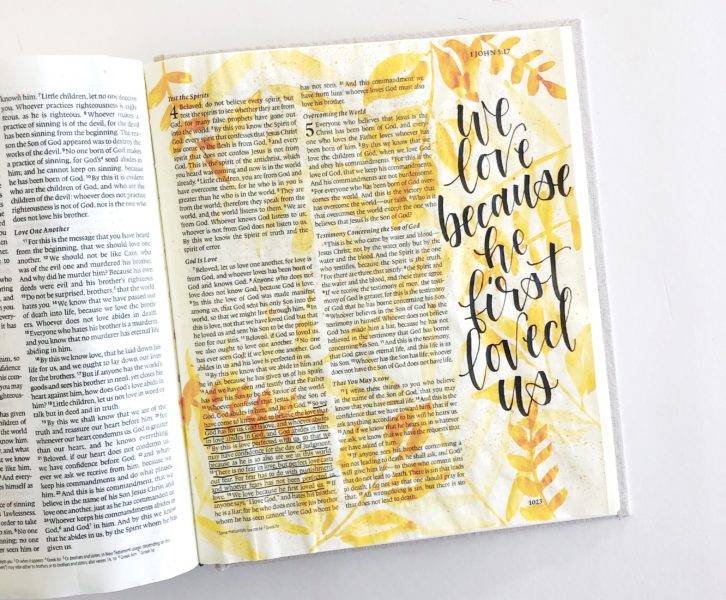 knowh him. 7 Little children, let no one deceive
you. Whoever practices righteousness is righ-
teous, as he is righteous. 8 Whoever makes a
practice of sinning is of the devil, for the devil
has been sinning from the beginning. The rea-
son the Son of God appeared was to destroy the
works of the devil. 9 No one born of God makes
a practice of sinning, for God's seed abides in
him; and he cannot keep on sinning, because
he has been born of God. 10 By this it is evident
who are the children of God, and who are the
children of the devil: whoever does not practice
righteousness is not of God, nor is the one who
does not love his brother.
Love One Another
11 For this is the message that you have heard
from the beginning, that we should love one
another. 12 We should not be like Cain, who
was of the evil one and murdered his brother.
And why did he murder him? Because his own
deeds were evil and his brother's righteous.
13 Do not be surprised, brothers, that the world
hates you. 14 We know that we have passed out
of death into life, because we love the brothers.
Whoever does not love abides in death.
15 Everyone who hates his brother is a murderer,
and you know that no murderer has eternal life
abiding in him.
16 By this we know love, that he laid down his
life for us, and we ought to lay down our lives
for the brothers. 17 But if anyone has the world's
goods and sees his brother in need, yet closes his
heart against him, how does God's love abide in
him? 18 Little children, let us not love in word or
talk but in deed and in truth.
19 By this we shall know that we are of the
truth and reassure our heart before him; 20 for
whenever our heart condemns us, God is greater
than our heart, and he knows everything.
21 Beloved, if our heart does not condemn us,
we have confidence before God; 22 and what-
ever we ask we receive from him, because we
keep his commandments and do what pleases
him. 23 And this is his commandment, that we
believe in the name of his Son Jesus Christ and
love one another, just as he has commanded us.
24 Whoever keeps his commandments abides in
God, and God in him. And by this we know
that he abides in us, by the Spirit whom he has
given us.
1 JOHN 5:17
Test the Spirits
4 Beloved, do not believe every spirit, but
test the spirits to see whether they are from
God, for many false prophets have gone out
into the world. 2 By this you know the Spirit of
God: every spirit that confesses that Jesus Christ
has come in the flesh is from God, 3 and every
spirit that does not confess Jesus is not from
God. This is the spirit of the antichrist, which
you heard was coming and now is in the world
already. 4 Little children, you are from God and
have overcome them, for he who is in you is
greater than he who is in the world. 5 They are
from the world; therefore they speak from the
world, and the world listens to them. 6 We are
from God. Whoever knows God listens to us;
whoever is not from God does not listen to us.
By this we know the Spirit of truth and the
spirit of error.
God Is Love
7 Beloved, let us love one another, for love is
from God, and whoever loves has been born of
God and knows God. 8 Anyone who does not
love does not know God, because God is love.
9 In this the love of God was made manifest
among us, that God sent his only Son into the
world, so that we might live through him. 10 In
this is love, not that we have loved God but that
he loved us and sent his Son to be the propitia-
tion for our sins. 11 Beloved, if God so loved us,
we also ought to love one another. 12 No one
has ever seen God; if we love one another, God
abides in us and his love is perfected in us.
have come to know and to believe the love that
God has for us. God is love, and whoever abides
in love abides in God, and God abides in him.
17 By this is love perfected with us, so that we
may have confidence for the day of judgment,
because as he is so also are we in this world.
18 There is no fear in love, but perfect love casts
out fear. For fear has to do with punishment,
and whoever fears has not been perfected in
love. 19 We love because he first loved us. 20 If
anyone says, "I love God," and hates his brother,
he is a liar; for he who does not love his brother
whom he has seen cannot love God whom he
has not seen. 21 And this commandment we
have from him: whoever loves God must also
love his brother.
Overcoming the World
5 Everyone who believes that Jesus is the
Christ has been born of God, and every-
one who loves the Father loves whoever has
been born of him. 2 By this we know that we
love the children of God, when we love God
and obey his commandments. 3 For this is the
love of God, that we keep his commandments.
And his commandments are not burdensome.
4 For everyone who has been born of God over-
comes the world. And this is the victory that
has overcome the world—our faith. 5 Who is it
that overcomes the world except the one who
believes that Jesus is the Son of God?
Testimony Concerning the Son of God
6 This is he who came by water and blood—
Jesus Christ; not by the water only but by the
water and the blood. And the Spirit is the one
who testifies, because the Spirit is the truth.
7 For there are three that testify: 8 the Spirit and
the water and the blood; and these three agree.
9 If we receive the testimony of men, the testi-
mony of God is greater, for this is the testimony
of God that he has borne concerning his Son.
10 Whoever believes in the Son of God has the
testimony in himself. Whoever does not believe
God has made him a liar, because he has not
believed in the testimony that God has borne
concerning his Son. 11 And this is the testimony,
that God gave us eternal life, and this life is in
his Son. 12 Whoever has the Son has life; whoever
does not have the Son of God does not have life.
That You May Know
13 I write these things to you who believe
in the name of the Son of God, that you may
know that you have eternal life. 14 And this is the
confidence that we have toward him, that if we
ask anything according to his will he hears us.
15 And if we know that he hears us in whatever
we ask, we know that we have the requests that
we have asked of him.
16 If anyone sees his brother committing a
sin not leading to death, he shall ask, and God
will give him life—to those who commit sins
that do not lead to death. There is sin that leads
to death; I do not say that one should pray for
that. 17 All wrongdoing is sin, but there is sin
that does not lead to death.
we
love
because
he
first
loved
us
1023